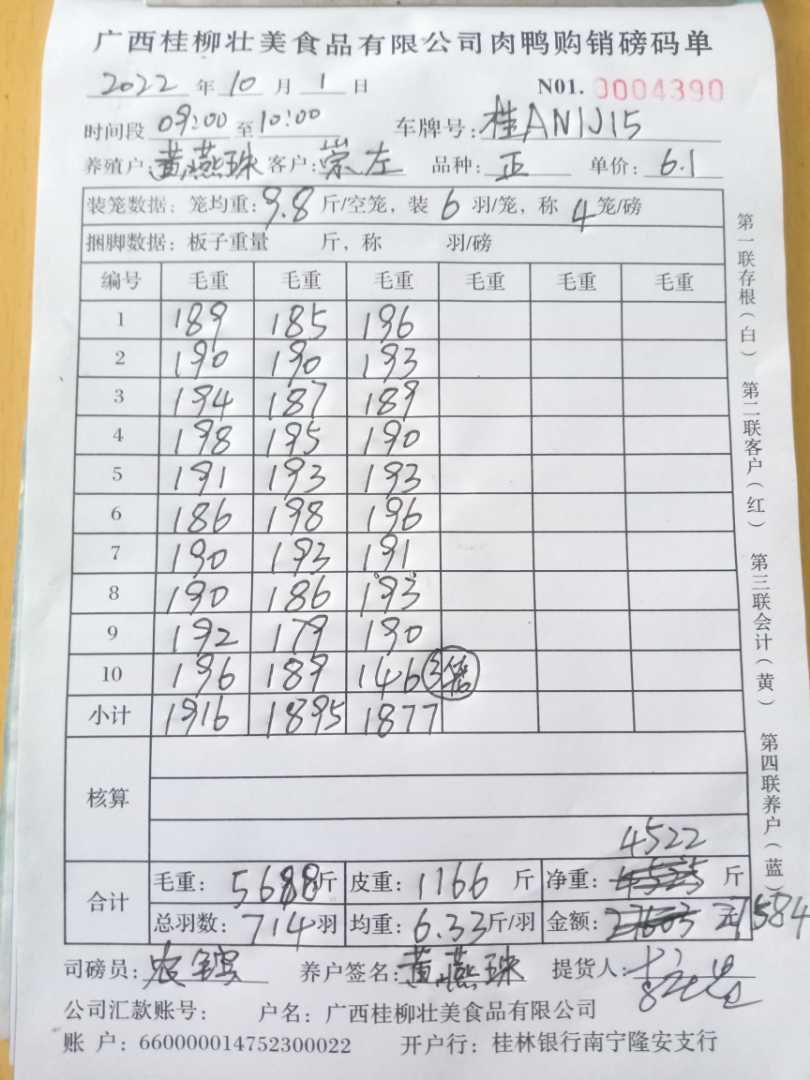 广西桂柳壮美食品有限公司肉鸭购销磅码单
2022 年 10 月 1 日 N01. 0004390
时间段 09:00 至 10:00 车牌号: 桂AN1J15
养殖户 黄燕珠 客户: 崇左 品种: 正 单价: 6.1
装笼数据: 笼均重: 9.8 斤/空笼, 装 6 羽/笼, 称 4 笼/磅
捆脚数据: 板子重量 斤, 称 羽/磅
编号 毛重 毛重 毛重 毛重 毛重 毛重
1 189 185 196
2 190 190 193
3 194 187 189
4 198 195 190
5 191 193 193
6 186 198 196
7 190 193 191
8 190 186 193
9 192 179 190
10 196 189 146 3笼
小计 1916 1895 1877
核算
4522
合计 毛重: 5688 斤 皮重: 1166 斤 净重: 斤
总羽数: 714 羽 均重: 6.33 斤/羽 金额: 27584
司磅员: 养户签名: 黄燕珠 提货人:
公司汇款账号: 户名: 广西桂柳壮美食品有限公司
账 户: 660000014752300022 开户行: 桂林银行南宁隆安支行
第一联存根(白) 第二联客户(红) 第三联会计(黄) 第四联养户(蓝)